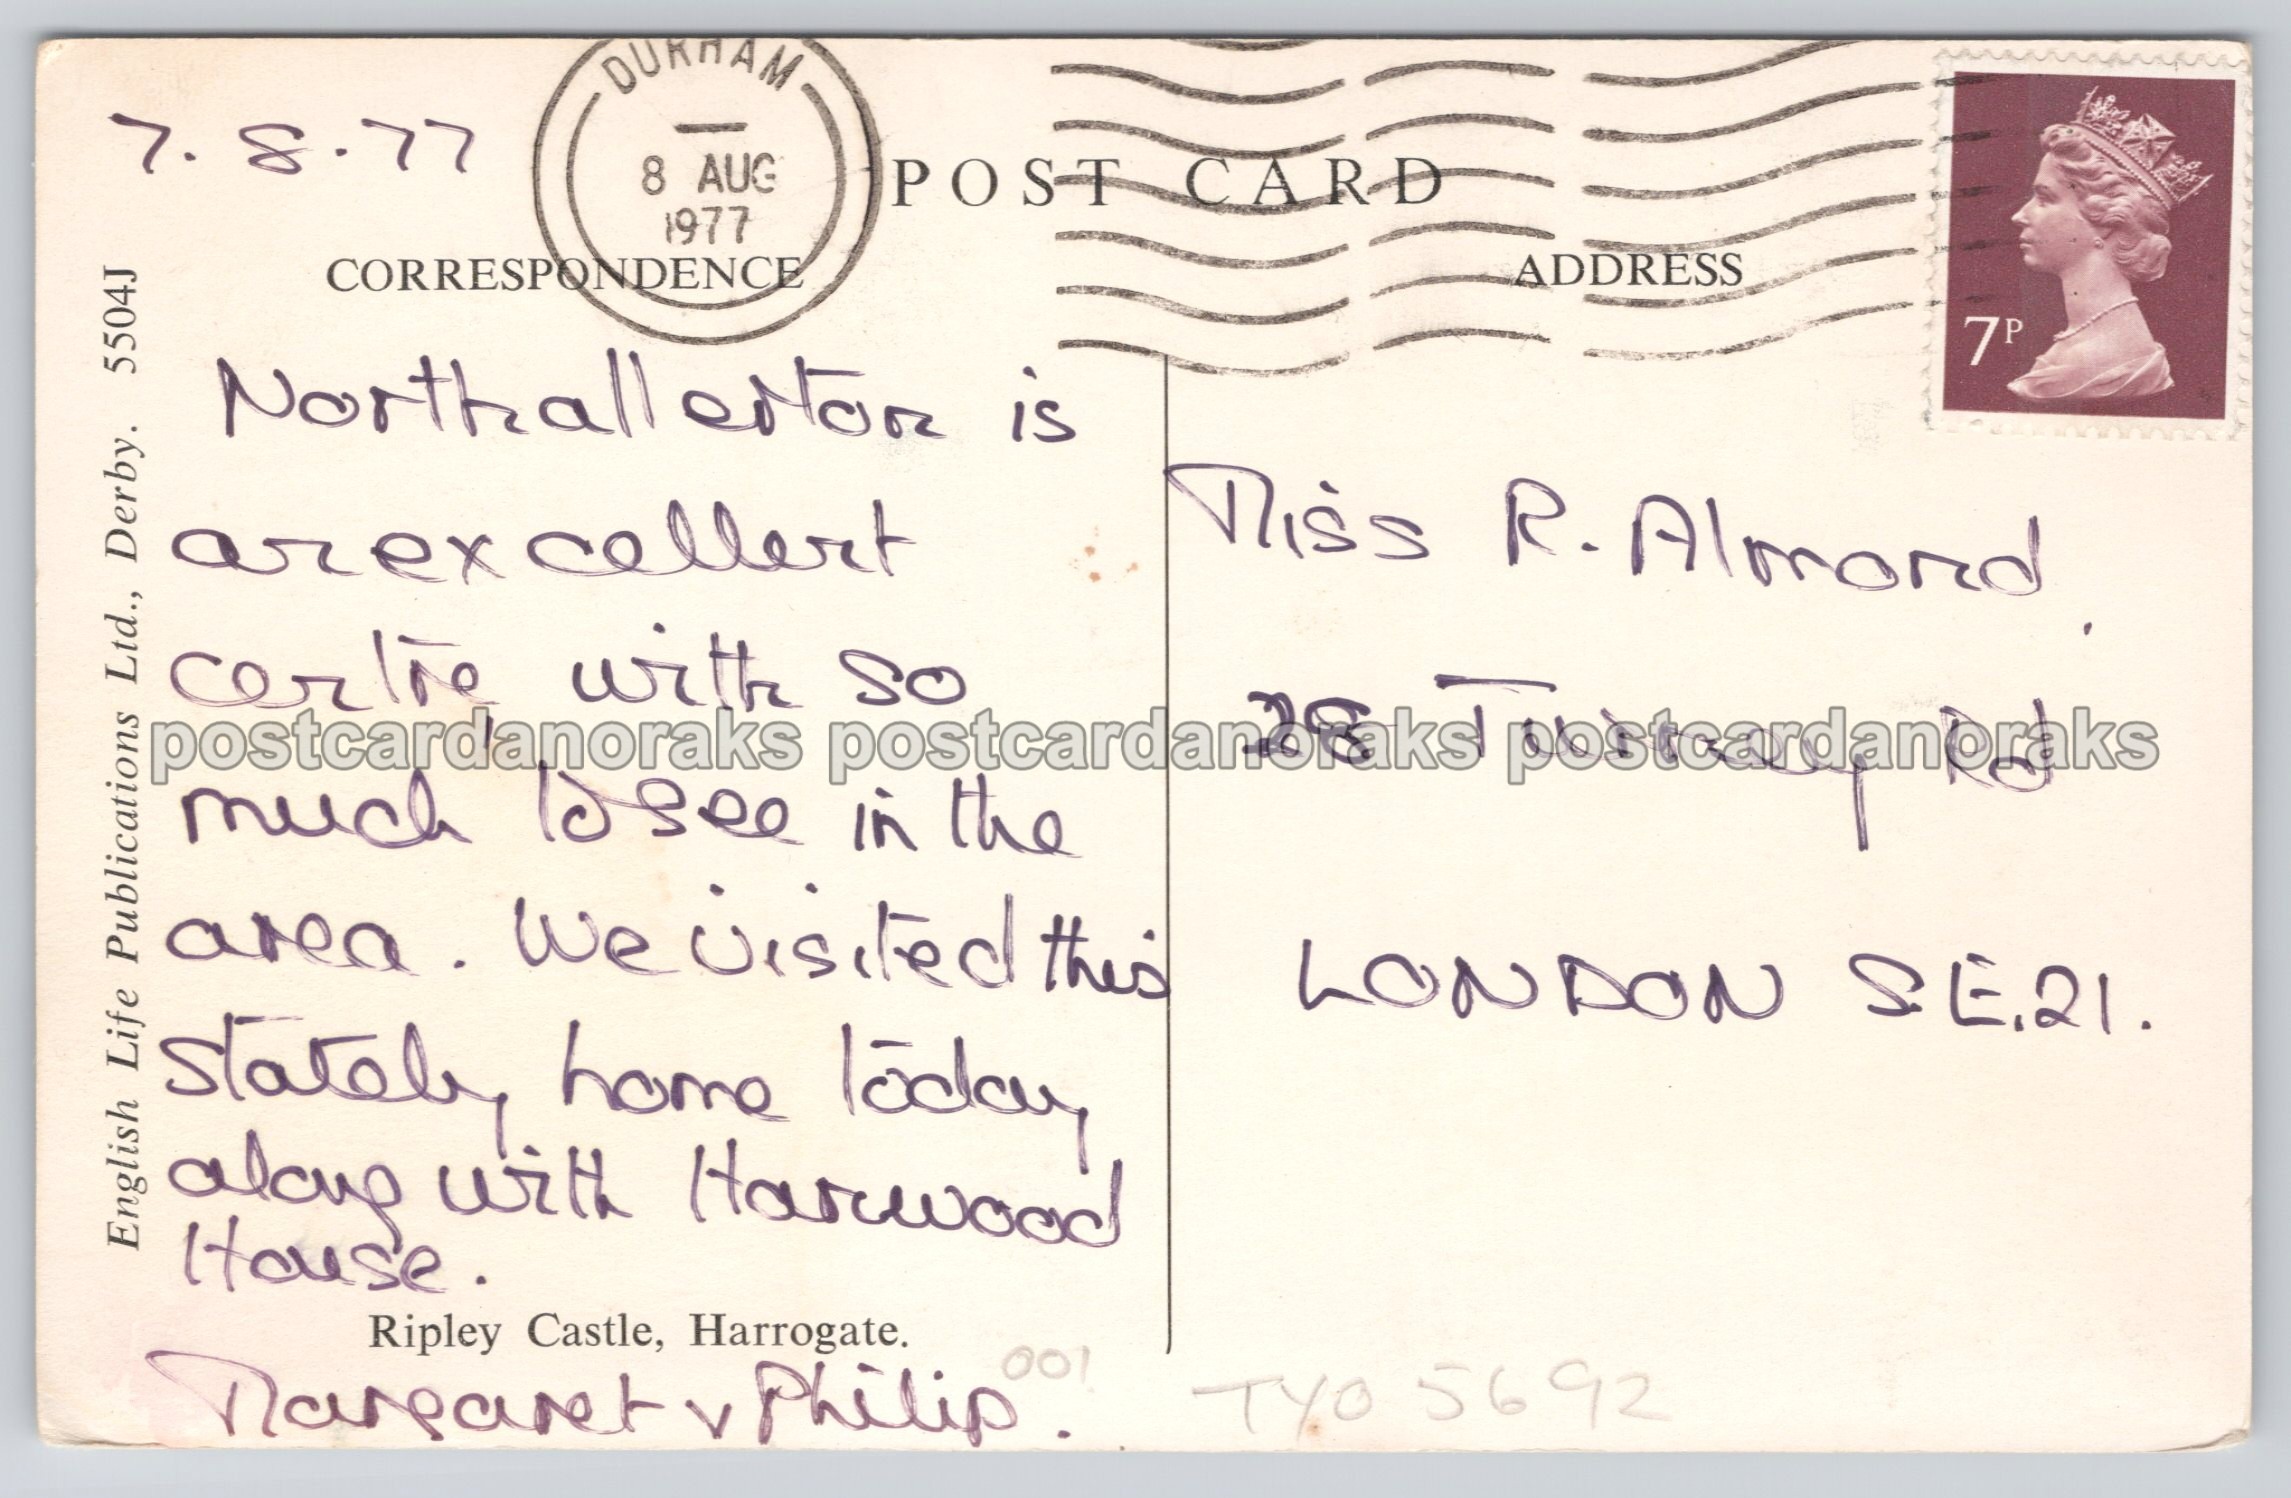 DURHAM
8 AUG
1977
7.8.77
POST CARD
CORRESPONDENCE
ADDRESS
7P
English Life Publications Ltd., Derby. 5504J
Northallerton is
an excellent
centre, with so
much to see in the
area. We visited this
stately home today
along with Harewood
House.
Ripley Castle, Harrogate.
Margaret & Philip.
001
Miss R. Almond,
28 Turney Rd
LONDON S.E.21.
TYO 5692
postcardanoraks postcardanoraks postcardanoraks